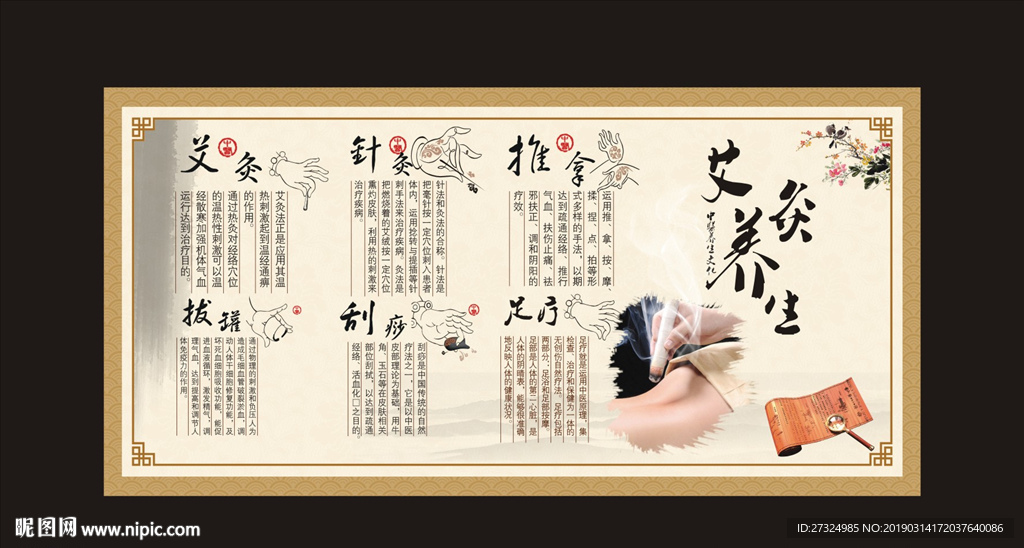 艾灸养生
中华养生文化
推拿
运用推、拿、按、摩、
揉、捏、点、拍等形
式多样的手法，以期
达到疏通经络、推行
气血、扶伤止痛、祛
邪扶正、调和阴阳的
疗效。
針灸
针法和灸法的合称。针法是
把毫针按一定穴位刺入患者
体内，运用捻转与提插等针
刺手法来治疗疾病。灸法是
把燃烧着的艾绒按一定穴位
熏灼皮肤，利用热的刺激来
治疗疾病。
艾灸
艾灸法正是应用其温
热刺激起到温经通痹
的作用。
通过热灸对经络穴位
的温热性刺激可以温
经散寒加强机体气血
运行达到治疗目的。
足疗
足疗就是运用中医原理，集
检查、治疗和保健为一体的
无创伤自然疗法。足疗包括
两部分：足浴和足部按摩。
足部是人体的第二心脏，是
人体的阴晴表，能够很准确
地反映人体的健康状况。
刮痧
刮痧是中国传统的自然
疗法之一，它是以中医
皮部理论为基础，用牛
角、玉石等在皮肤相关
部位刮拭，以达到疏通
经络、活血化□之目的。
拔罐
通过物理的刺激和负压人为
造成毛细血管破裂淤血，调
动人体干细胞修复功能，及
坏死血细胞吸收功能，能促
进血液循环，激发精气，调
理气血，达到提高和调节人
体免疫力的作用。
昵图网 www.nipic.com
ID:27324985 NO:20190314172037640086